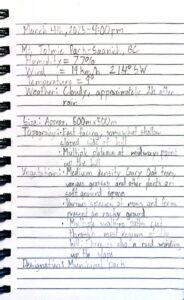 March 4th, 2023 - 4:00pm
Mt. Tolmie Park - Saanich, BC
Humidity = 77%
Wind = 19km/h 214° SW
Temperature = 9°
Weather: Cloudy, approximately 2h after
rain
Size: Approx. 500m x 300m
Topography: East facing, somewhat shallow
sloped side of hill
• Multiple plateaus at midways point
up the hill
Vegetation: • Medium density Garry Oak trees,
various grasses and other plants on
soft ground space
• Various species of moss and ferns
present on rocky ground
• Multiple walking paths cut
through most regions of the
hill. There is also a road winding
up the slope
Designation: Municipal park